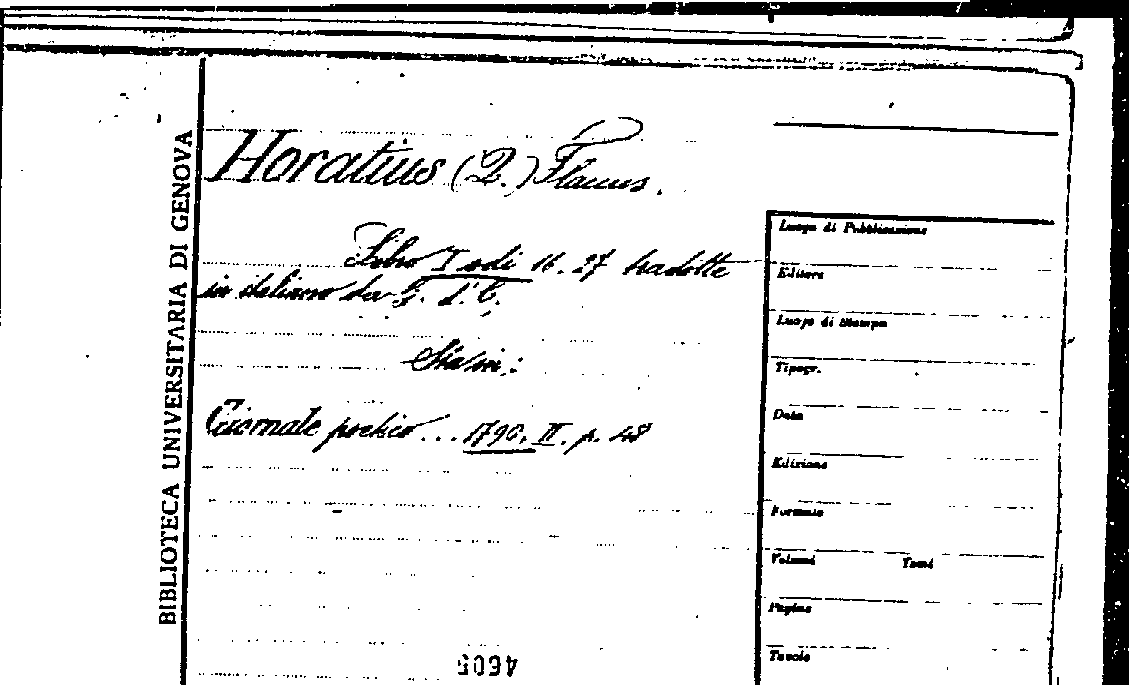 BIBLIOTECA UNIVERSITARIA DI GENOVA
Horatius (Q.) Flaccus.
Libro I odi 16. 27 tradotte
in italiano da G. d. C.
Sta in:
Giornale poetico... 1790. II. p. 48
Luogo di Pubblicazione
Editore
Luogo di Stampa
Tipogr.
Data
Edizione
Formato
Volumi Tomi
Pagine
Tavole
4605